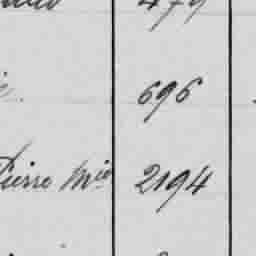 479
696
Pierre Mie 2194